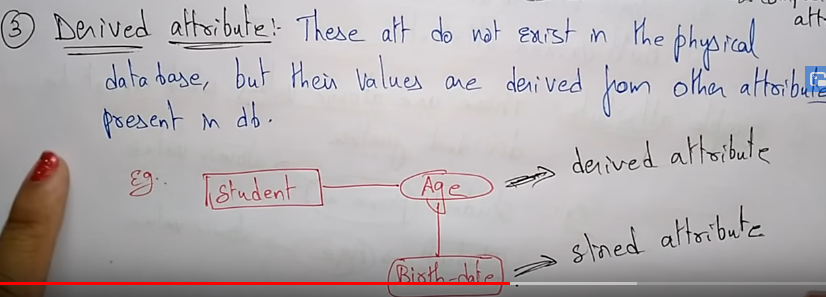 att
③ Derived attribute:- These att do not exist in the physical
data base, but their values are derived from other attribute
present in db.
Eg. Student Age derived attribute
Birth-date stored attribute